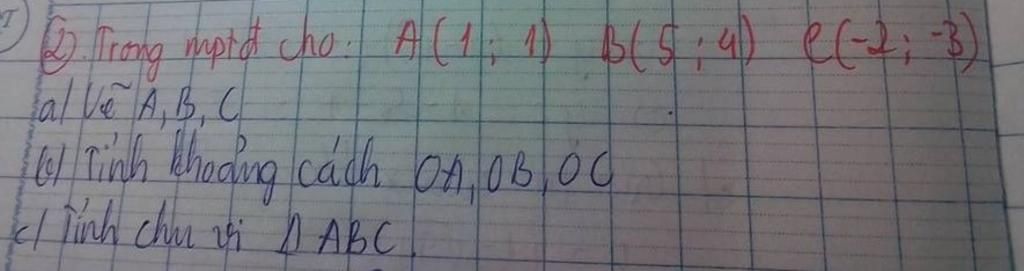 ② Trong mptđ cho: A(1; 1) B(5; 4) C(-2; -3)
a/ Vẽ A, B, C
b/ Tính khoảng cách OA, OB, OC
c/ Tính chu vi Δ ABC.